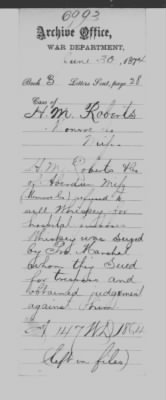 6993
Archive Office,
WAR DEPARTMENT,
June 30, 1874
Book 3 Letters Sent, page 28
Case of
H. M. Roberts
Monroe Co
Miss.
H. M. Roberts
of Aberdeen Miss
(Monroe Co) refused to
sell Whiskey for
hospital
Whiskey was seized
by Pro. Marshal
whom they Sued
for trespass and
obtained judgement
against him
147 WD 1864
(left in files)